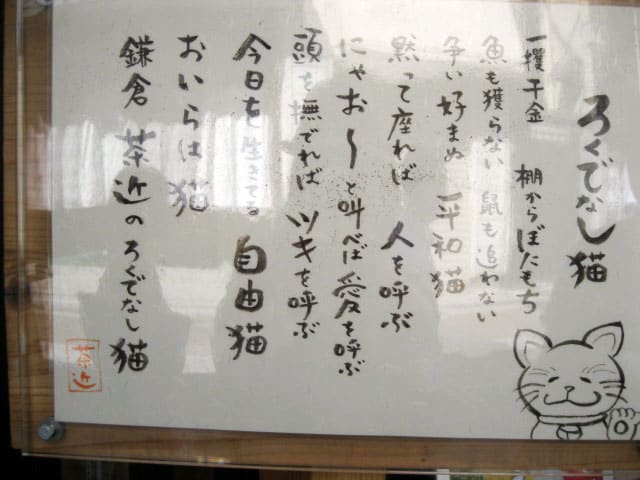 ろくでなし猫
一攫千金　棚からぼたもち
魚も獲らない　鼠も追わない
争い好まぬ　平和猫
黙って座れば　人を呼ぶ
にゃお〜と叫べば愛を呼ぶ
頭を撫でれば　ツキを呼ぶ
今日を生きてる　自由猫
おいらは猫
鎌倉　茶近のろくでなし猫
茶近